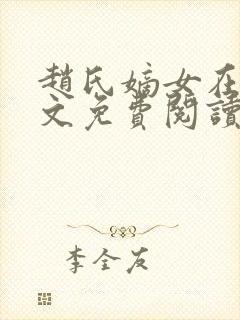 趙氏嫡女在
文免費閱讀
李全友